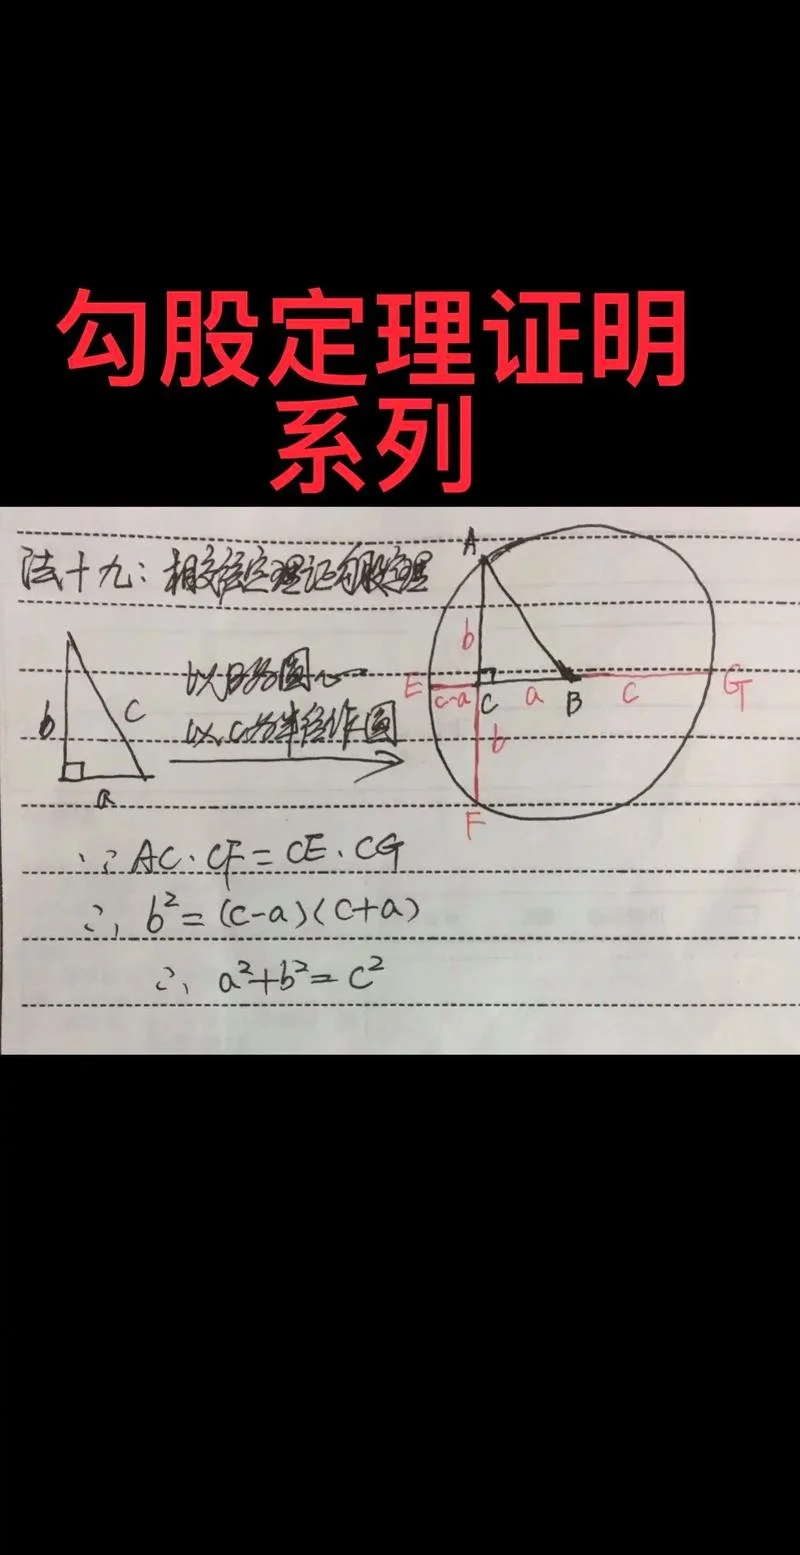 勾股定理证明
系列
法十九：相交弦定理证勾股定理
以B为圆心
以c为半径作圆
b
c
a
A
b
E
c-a
C
a
B
c
G
b
F
∵ AC·CF=CE·CG
∴ b²=(c-a)(c+a)
∴ a²+b²=c²